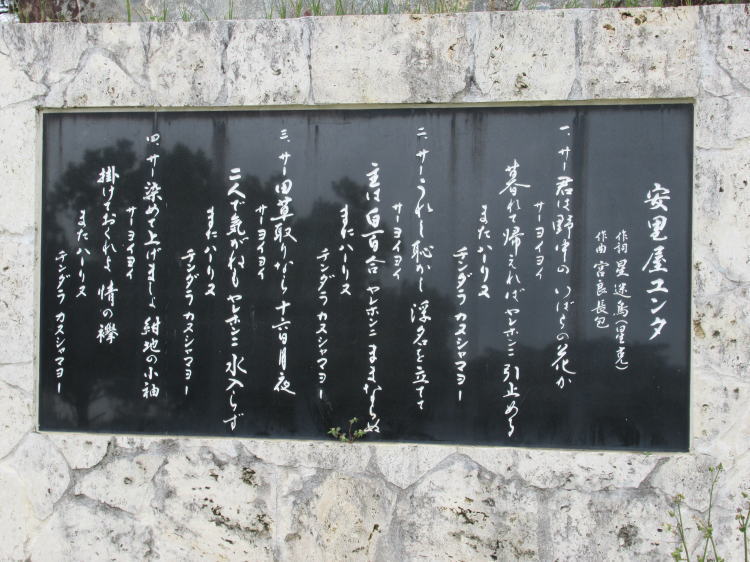 安里屋ユンタ
作詞 星迷鳥(星克)
作曲 宮良長包
一、サー君は野中の いばらの花か
サーヨイヨイ
暮れて帰えれば ヤレホンニ 引止める
またハーリヌ
チンダラ カヌシャマヨー
二、サーうれし恥かし 浮名を立てて
サーヨイヨイ
主は白百合 ヤレホンニ ままならぬ
またハーリヌ
チンダラ カヌシャマヨー
三、サー田草取りなら 十六日月夜
サーヨイヨイ
二人で気がねも ヤレホンニ 水入らず
またハーリヌ
チンダラ カヌシャマヨー
四、サー染めて上げましょ 紺地の小袖
サーヨイヨイ
掛けておくれよ 情の襷
またハーリヌ
チンダラ カヌシャマヨー